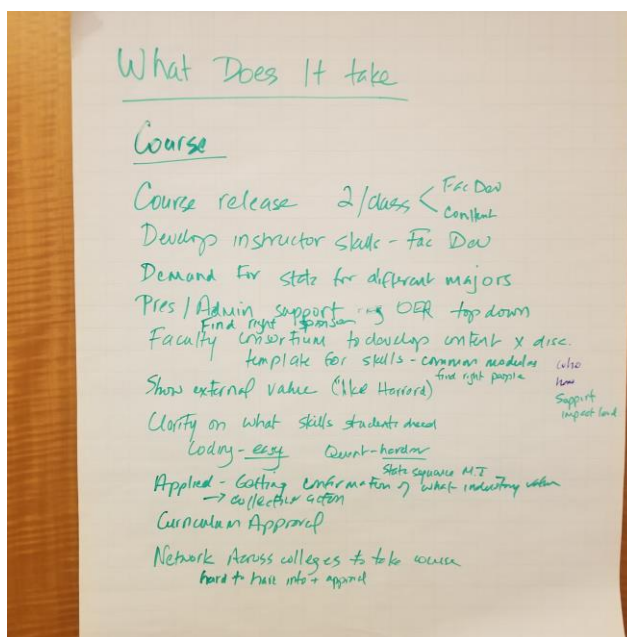 What Does It take
Course
Course release 2/class < Fac Dev
Content
Develop instructor skills - Fac Dev
Demand for stats for different majors
Pres / Admin support eg OER top down
Find right sponsor
Faculty consortium to develop content x disc.
template for skills - common modules
find right people
Show external value ("like Harvard)
Support
impact
Clarity on what skills students need
Coding - easy Quant - harder
Stats sequence M.I
Applied - Getting confirmation of what industry value
→ collective action
Curriculum Approval
Network Across colleges to take course
hard to have info + approval